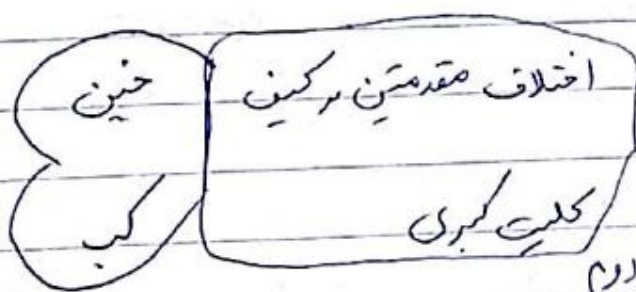 اختلاف مقدمتین در کیف خین
کلیت کبری کب
دوم